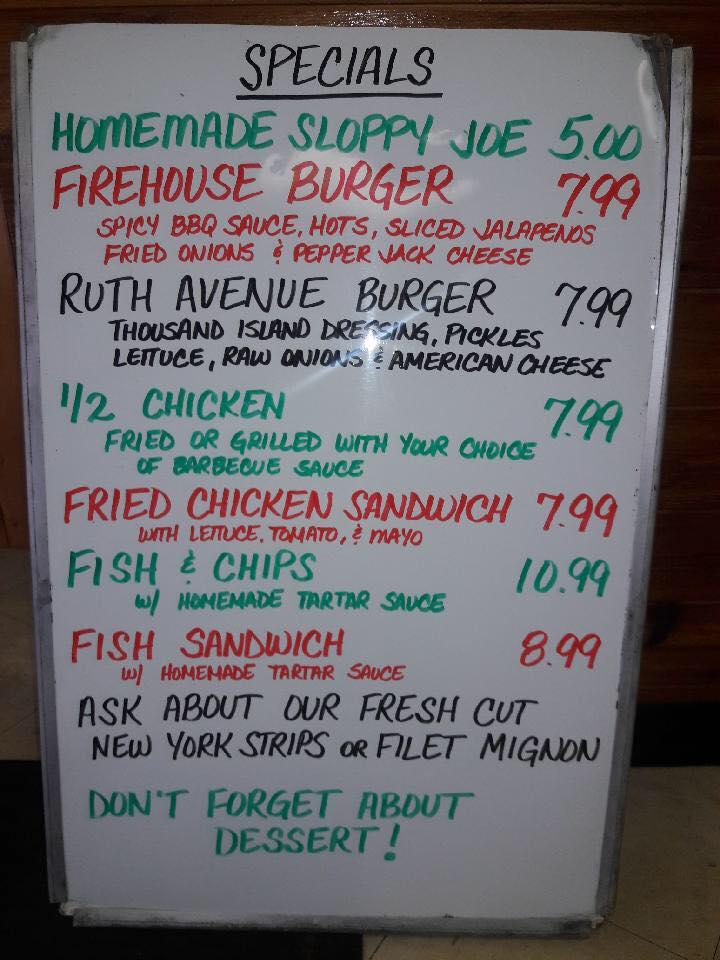 SPECIALS
HOMEMADE SLOPPY JOE 5.00
FIREHOUSE BURGER 7.99
SPICY BBQ SAUCE, HOTS, SLICED JALAPENOS
FRIED ONIONS & PEPPER JACK CHEESE
RUTH AVENUE BURGER 7.99
THOUSAND ISLAND DRESSING, PICKLES
LETTUCE, RAW ONIONS & AMERICAN CHEESE
1/2 CHICKEN 7.99
FRIED OR GRILLED WITH YOUR CHOICE
OF BARBECUE SAUCE
FRIED CHICKEN SANDWICH 7.99
WITH LETTUCE, TOMATO, & MAYO
FISH & CHIPS 10.99
W/ HOMEMADE TARTAR SAUCE
FISH SANDWICH 8.99
W/ HOMEMADE TARTAR SAUCE
ASK ABOUT OUR FRESH CUT
NEW YORK STRIPS OR FILET MIGNON
DON'T FORGET ABOUT
DESSERT!